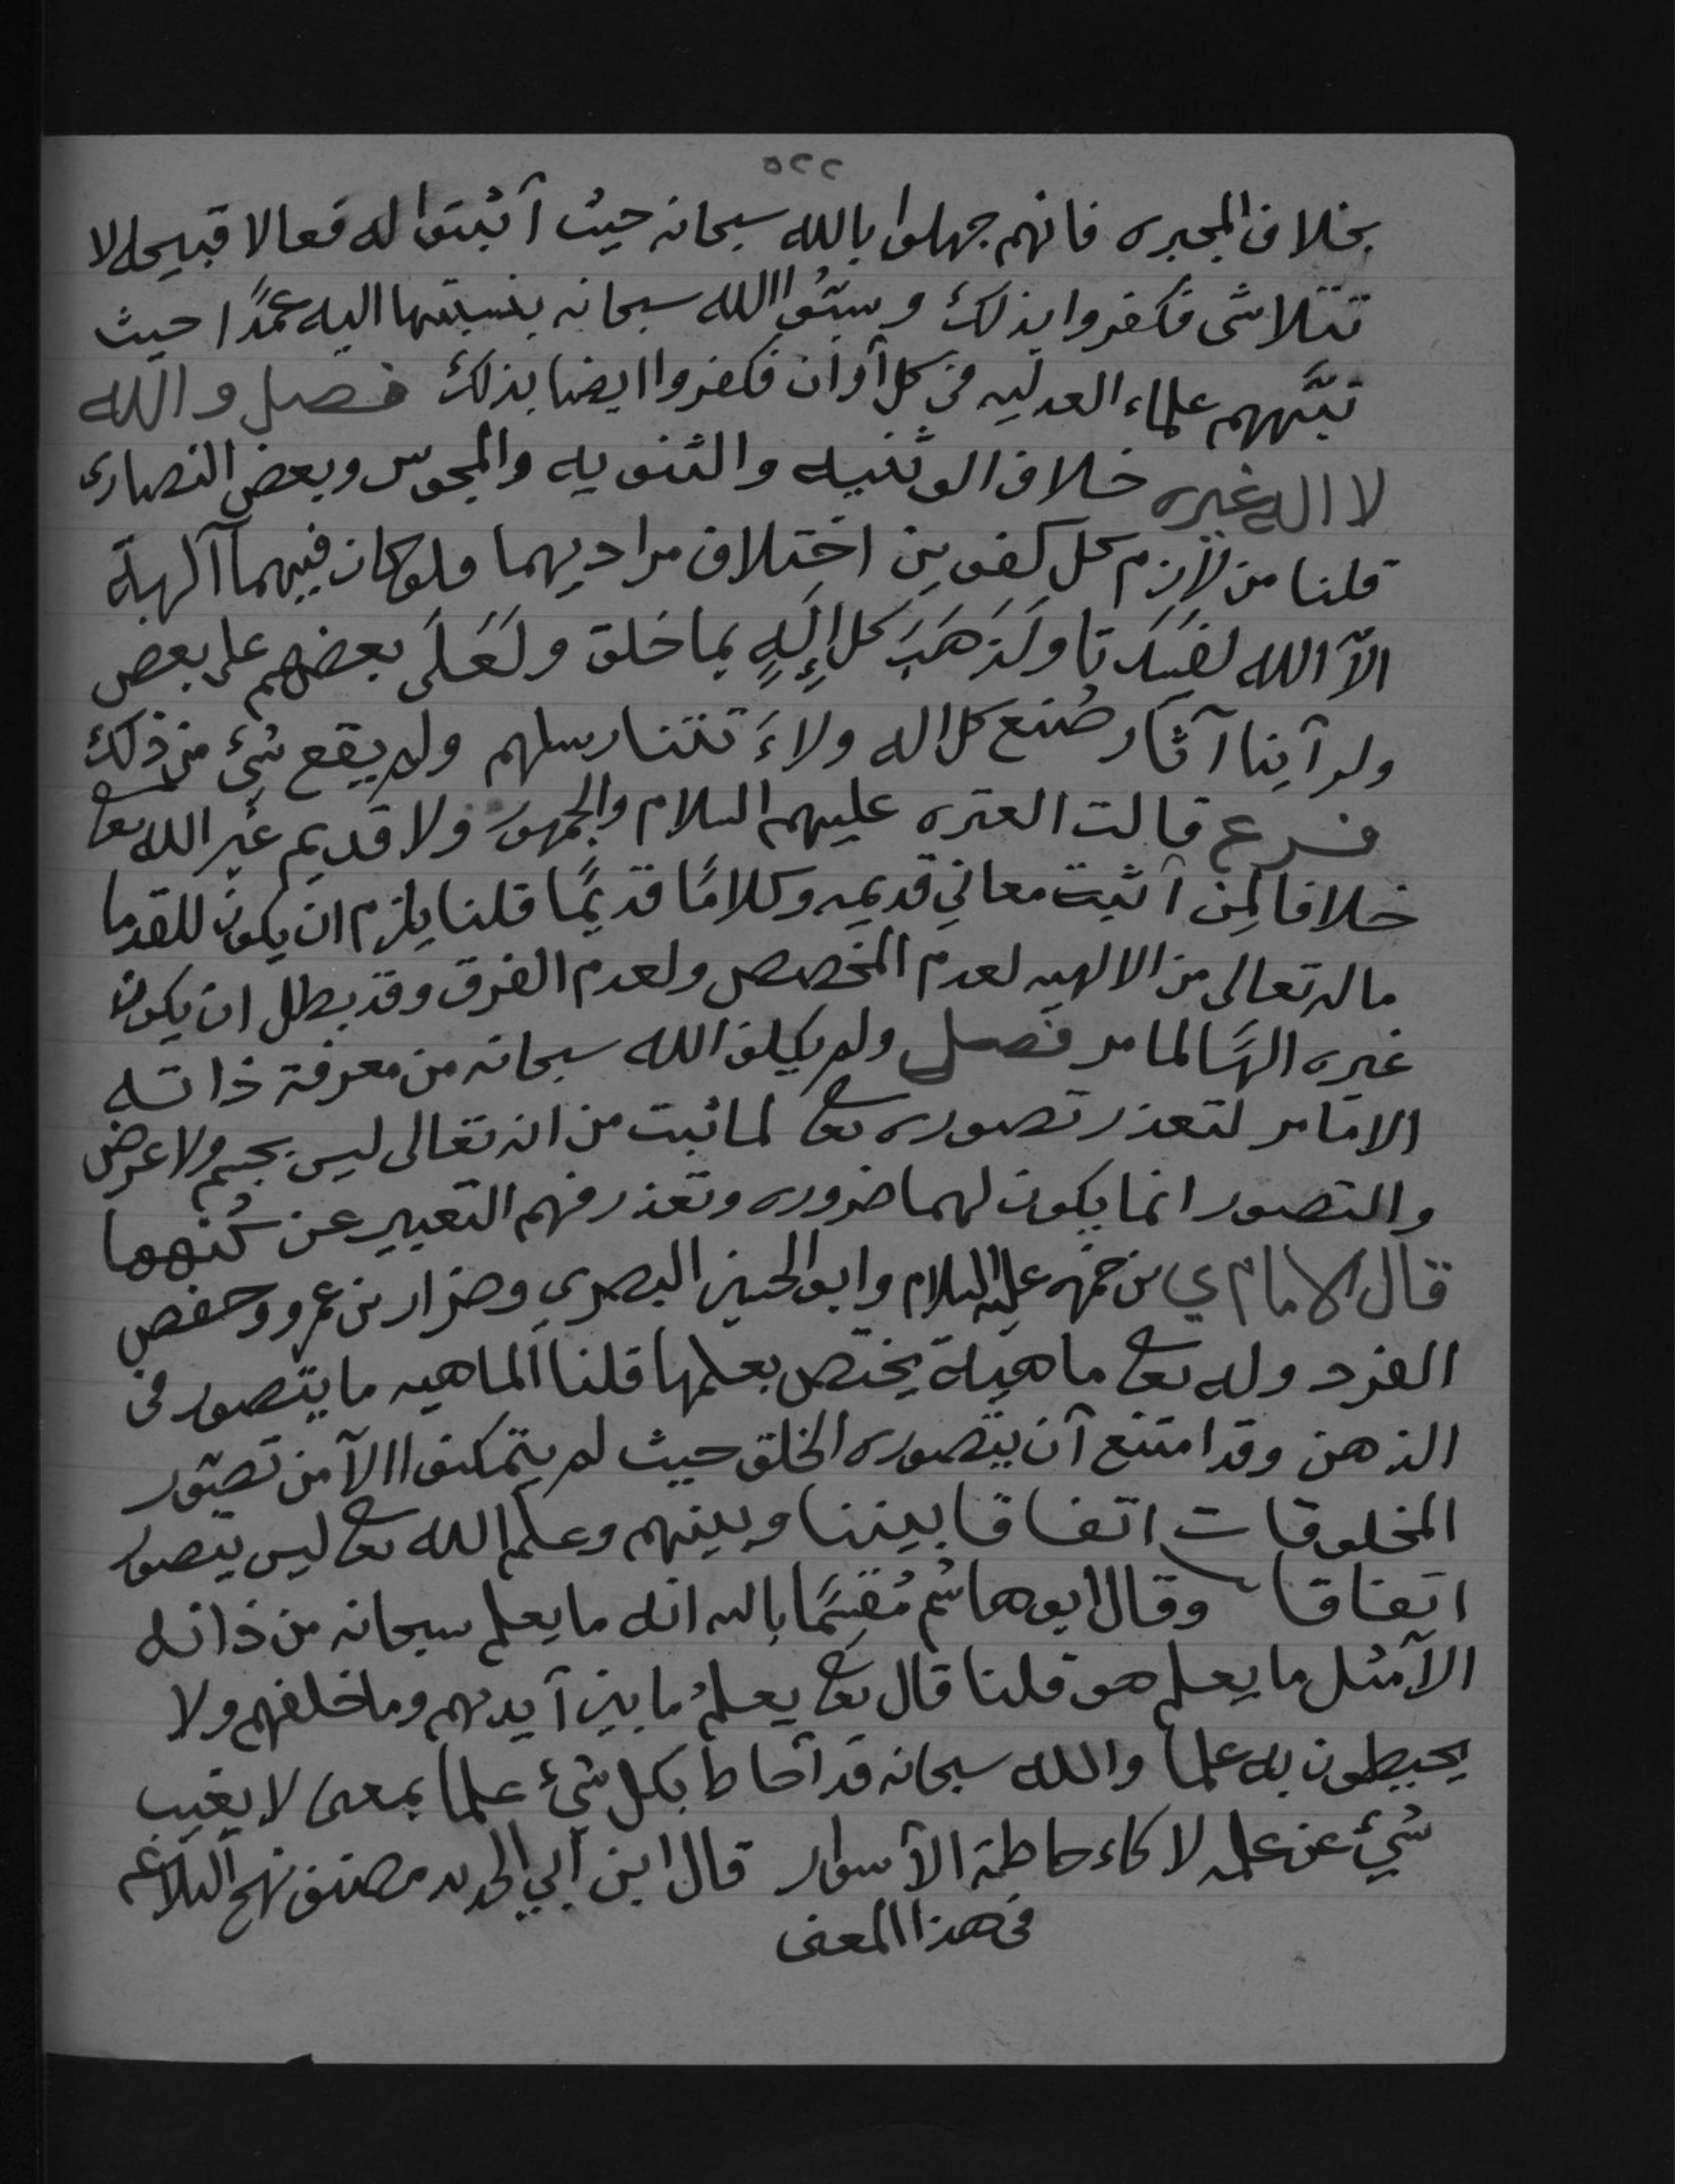 ٥٢٢
بخلاف المجبره فانهم جهلوا بالله سبحانه حيث أثبتوا له فعالا قبيحه لا
تتلاشى فكفروا بذلك وسبّوا الله سبحانه بنسبتها اليه عمدًا حيث
نبّههم علماء العدليه في كل أوان فكفروا ايضا بذلك فصل والله
لا اله غيره خلاف الوثنيه والثنويه والمجوس وبعض النصارى
قلنا من لازم كل كفوين اختلاف مراديهما ولو كان فيهما آلهة
الاّ الله لفسَدَتا ولَذَهَبَ كل إِلَهٍ بما خلق ولَعَلَى بعضهم على بعض
ولرأينا آثار صُنع كل اله ولأَتتنا رسلهم ولم يقع شيئ من ذلك
فرع قالت العتره عليهم السلام والجمهور ولا قديم غير الله تعالى
خلافا لمن أثبت معاني قديمه وكلامًا قديمًا قلنا يلزم ان يكون للقدما
ما له تعالى من الالهيه لعدم المخصص ولعدم الفرق وقد بطل ان يكون
غيره الهًا لما مر فصل ولم يكلف الله سبحانه من معرفة ذاته
الا ما مر لتعذر تصوره تعالى لما ثبت من انه تعالى ليس بجسم ولا عرض
والتصور انما يكون لهما ضروره وتعذر فهم التعبير عن كُنههما
قال الامام ي بن حمزه عليه السلام وابو الحسين البصري وضرار بن عمرو وحفص
الفرد وله تعالى ماهية يختص بعلمها قلنا الماهيه ما يتصور في
الذهن وقد امتنع أن يتصوره الخلق حيث لم يتمكنوا الاّ من تصوّر
المخلوقات اتفاقا بيننا وبينهم وعلم الله تعالى ليس بتصور
اتفاقا وقال ابو هاشم مُقسِمًا بالله انه ما يعلم سبحانه من ذاته
الاّ مثل ما يعلم هو قلنا قال تعالى يعلمُ ما بين أيديهم وما خلفهم ولا
يحيطون به علما والله سبحانه قد أحاط بكل شيئ علما بمعنى لا يغيب
شيئ عن علمه لا كاءحاطة الأسوار قال ابن أبي الحديد مصنف نهج البلاغه
في هذا المعنى